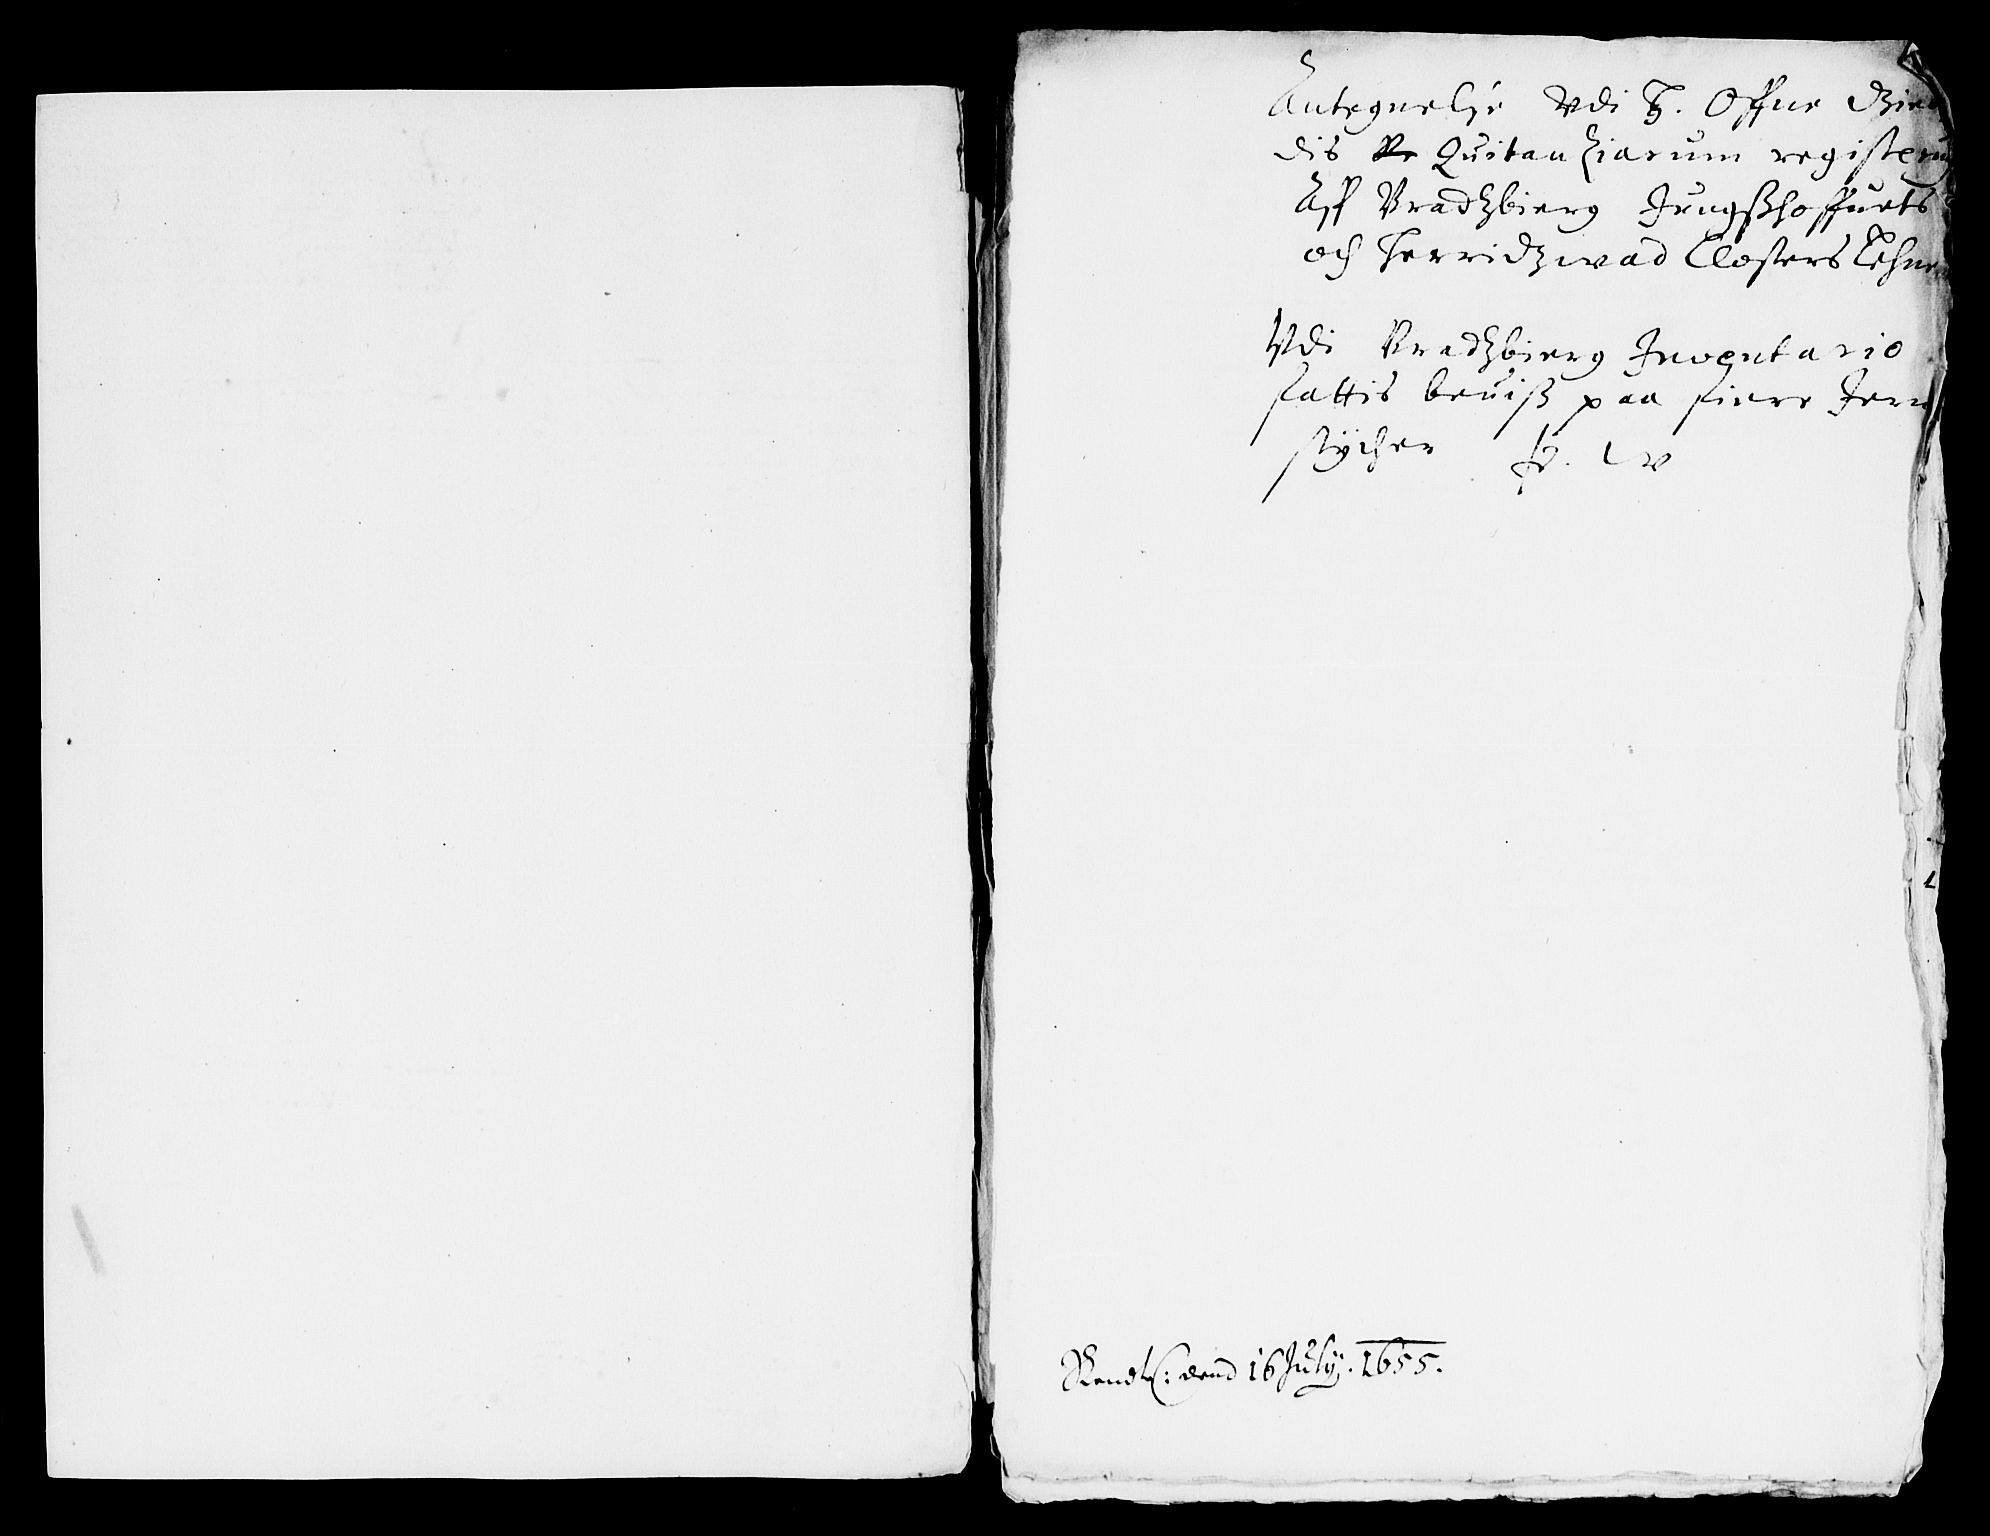 Antegnelse Vdi H. Offue Gied
dis Quitantziarum register
Aff Bradtzbierg Jungshoffuets
och Herridtzwad Closters Lehne
Vdi Bradtzbierg Inventario
fattis beuiß paa fiere Jern
stycher
Rendtt: dend 16 July. 1655.